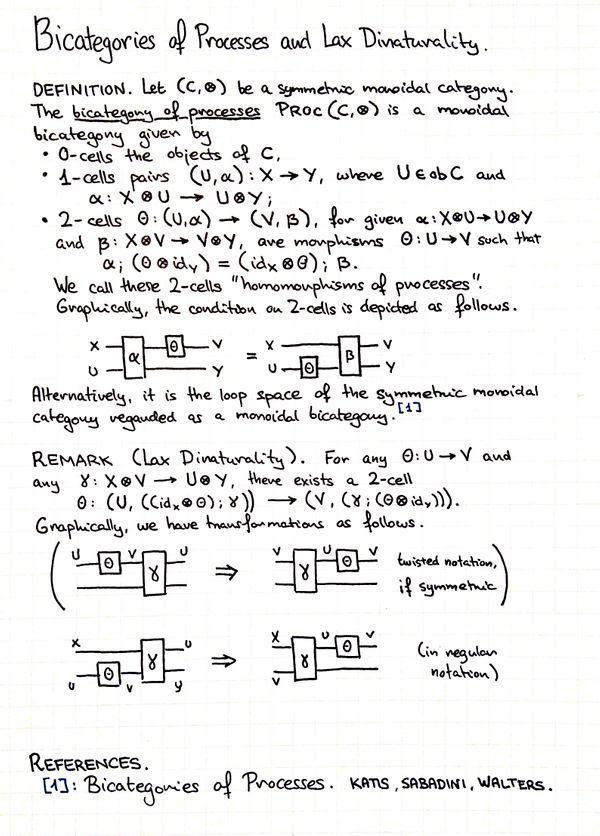 Bicategories of Processes and Lax Dinaturality.
DEFINITION. Let (C,⊗) be a symmetric monoidal category.
The bicategory of processes PROC(C,⊗) is a monoidal
bicategory given by
• 0-cells the objects of C,
• 1-cells pairs (U,α): X → Y, where U∈obC and
α: X⊗U → U⊗Y;
• 2-cells θ: (U,α) → (V,β), for given α: X⊗U→U⊗Y
and β: X⊗V → V⊗Y, are morphisms θ: U→V such that
α; (θ⊗id_Y) = (id_X⊗θ); β.
We call these 2-cells "homomorphisms of processes".
Graphically, the condition on 2-cells is depicted as follows.
X α θ V = X β V
U Y U θ Y
Alternatively, it is the loop space of the symmetric monoidal
category regarded as a monoidal bicategory.[1]
REMARK (Lax Dinaturality). For any θ: U→V and
any γ: X⊗V → U⊗Y, there exists a 2-cell
θ: (U, ((id_X⊗θ); γ)) → (V, (γ; (θ⊗id_Y))).
Graphically, we have transformations as follows.
( U θ V γ U ⇒ V γ U θ V twisted notation, if symmetric )
X γ U ⇒ X γ U θ V (in regular
U θ V Y V notation)
REFERENCES.
[1]: Bicategories of Processes. KATIS, SABADINI, WALTERS.